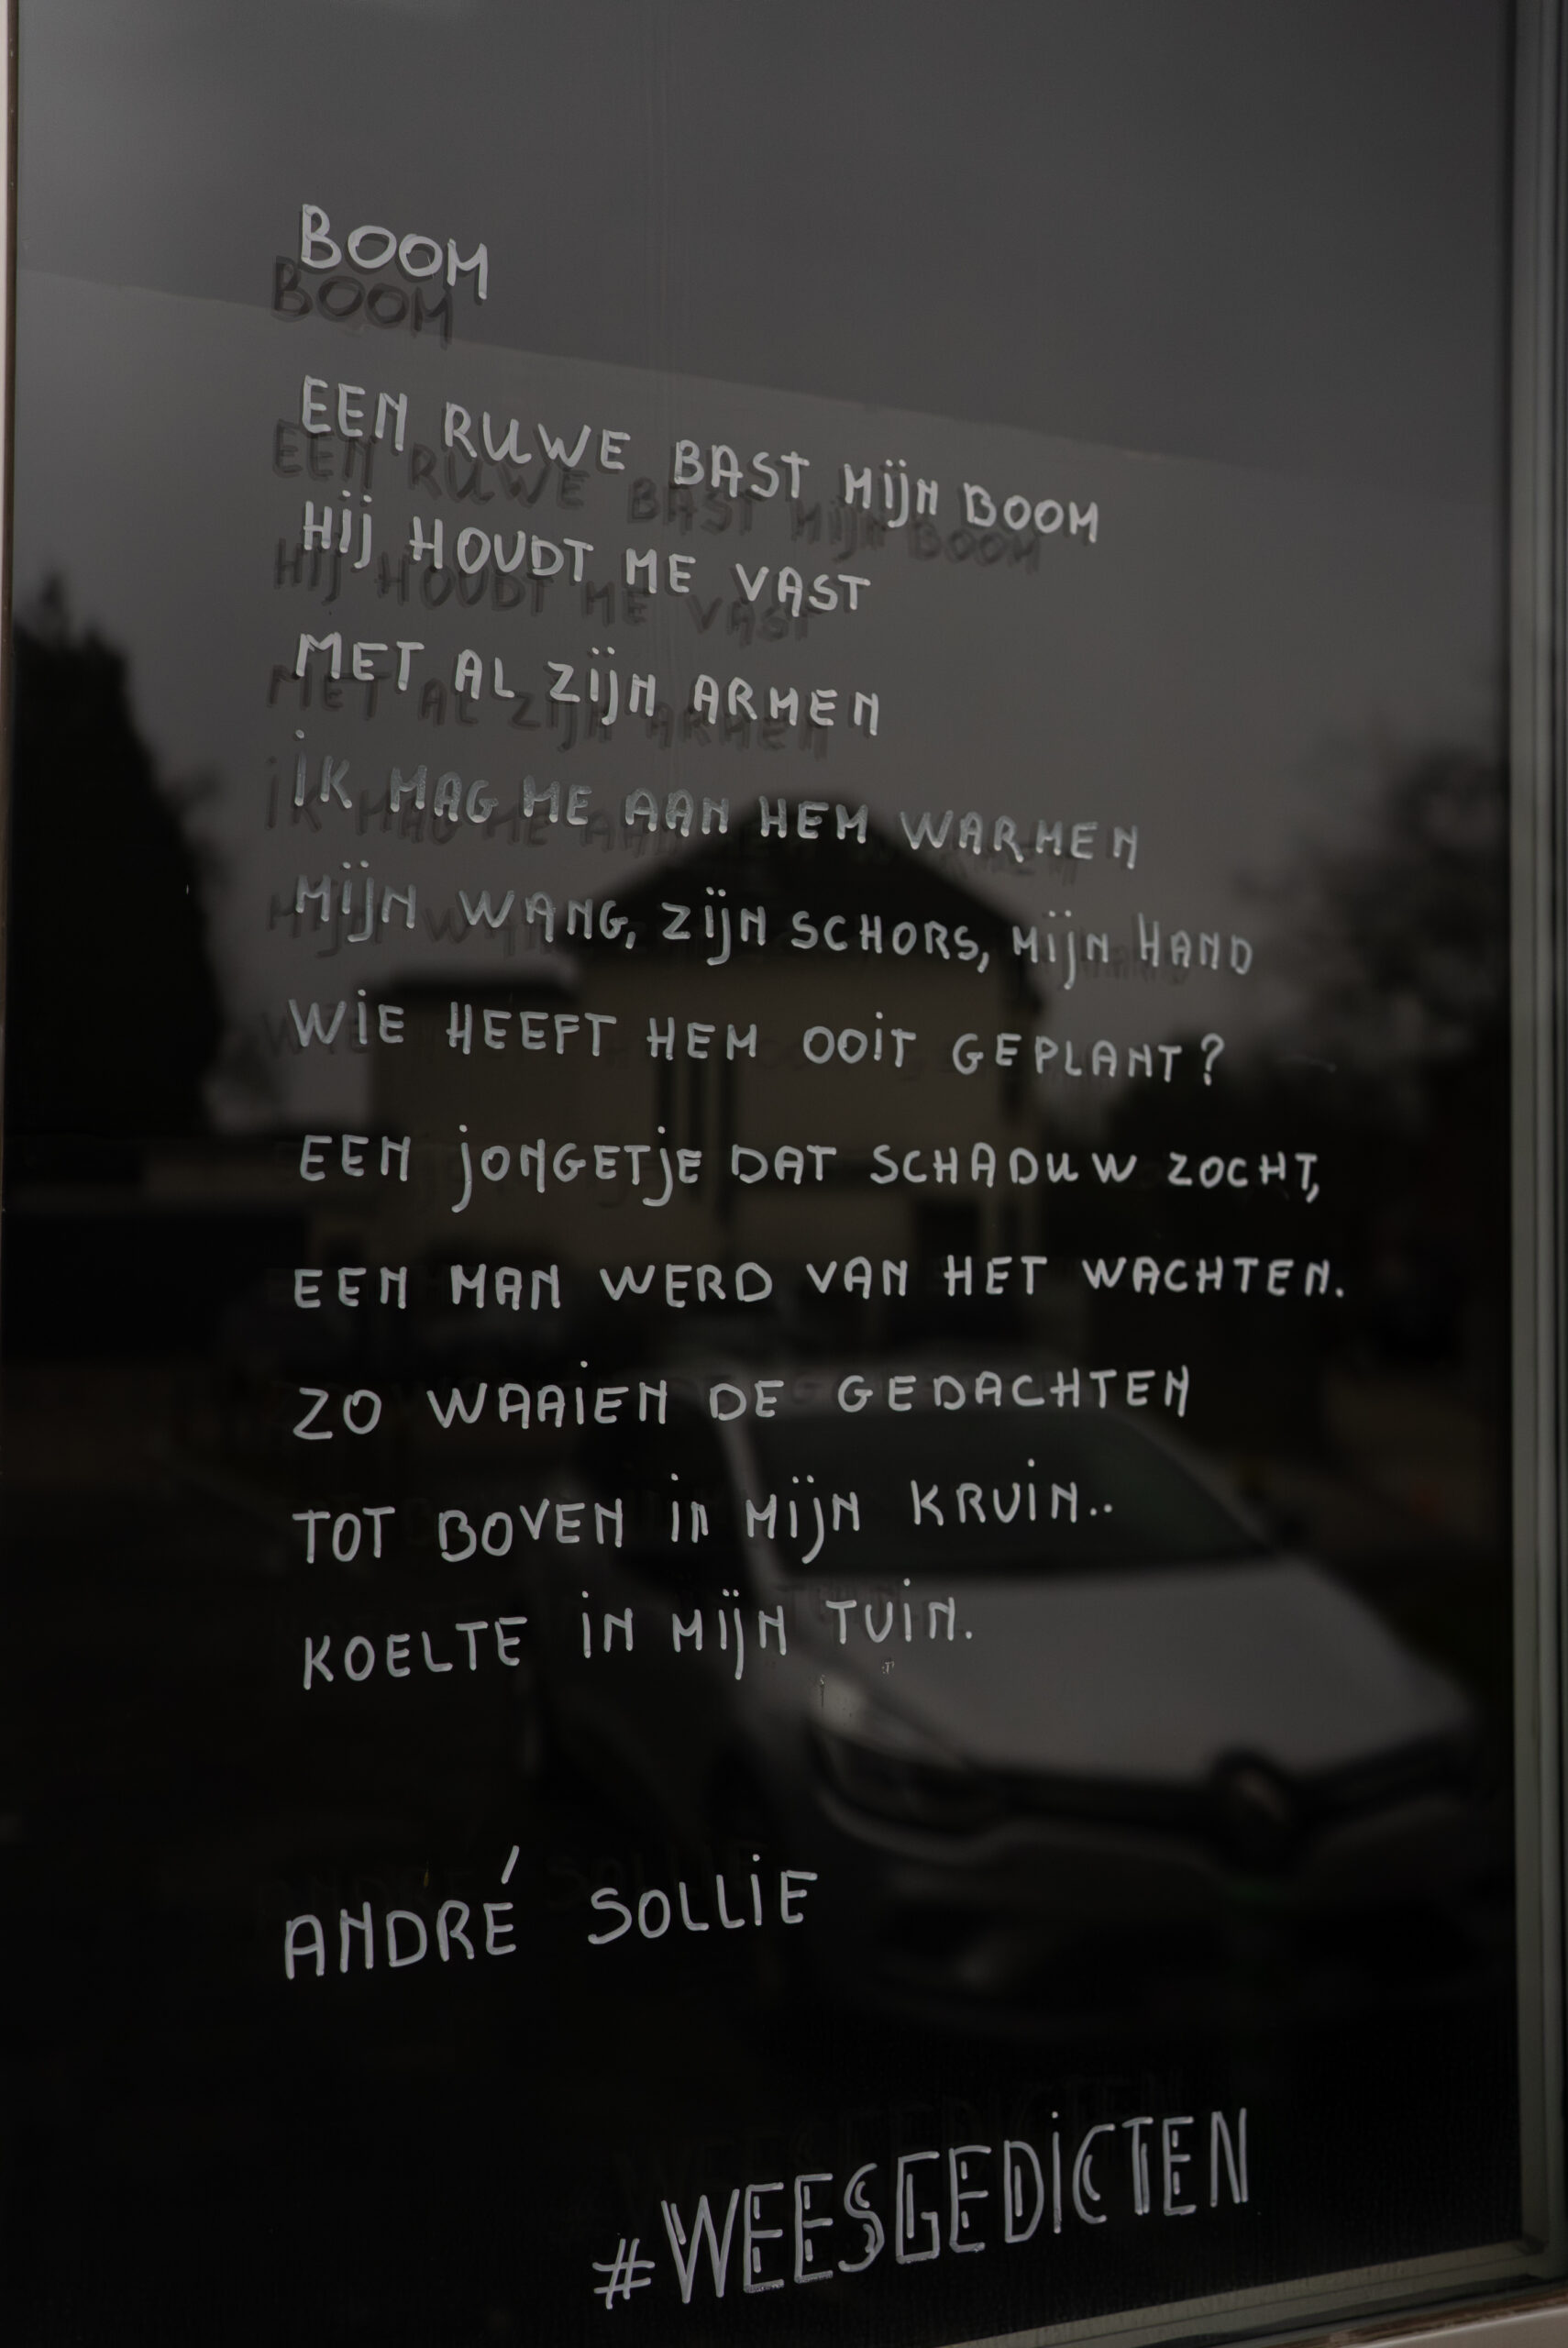 BOOM
EEN RUWE BAST MIJN BOOM
HIJ HOUDT ME VAST
MET AL ZIJN ARMEN
IK MAG ME AAN HEM WARMEN
MIJN WANG, ZIJN SCHORS, MIJN HAND
WIE HEEFT HEM OOIT GEPLANT?
EEN JONGETJE DAT SCHADUW ZOCHT,
EEN MAN WERD VAN HET WACHTEN.
ZO WAAIEN DE GEDACHTEN
TOT BOVEN IN MIJN KRUIN..
KOELTE IN MIJN TUIN.
ANDRÉ SOLLIE
#WEESGEDICTEN